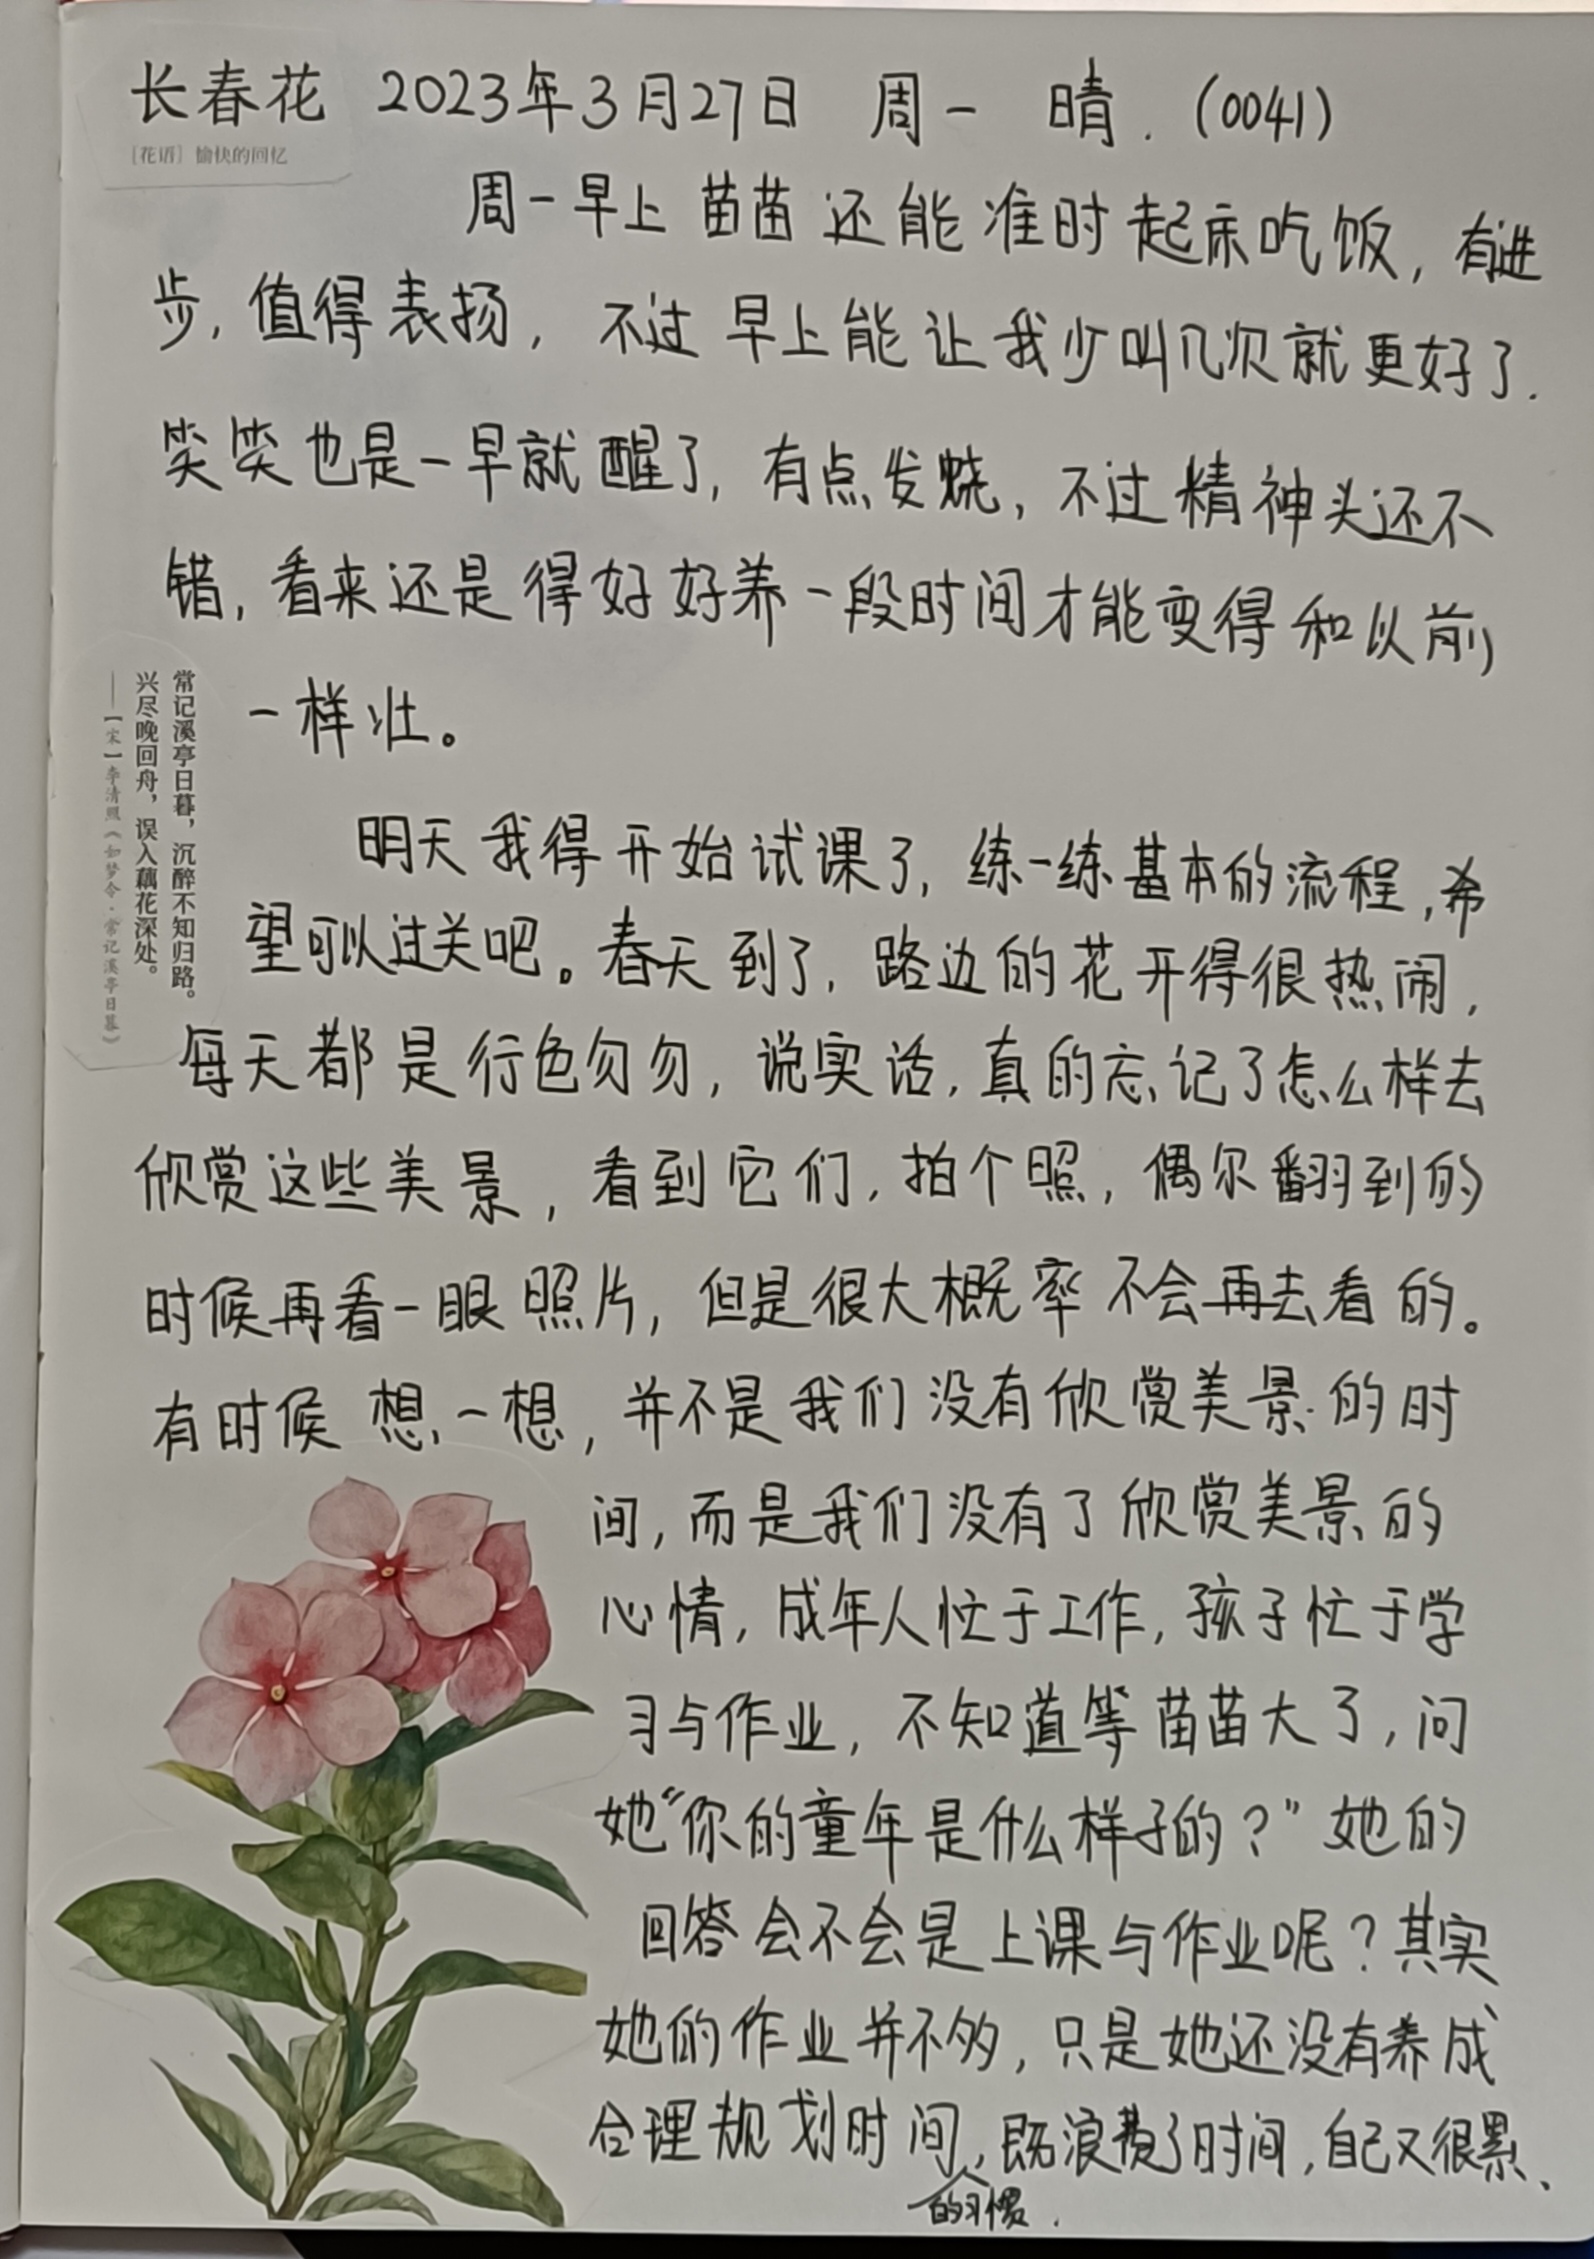 长春花 2023年3月27日 周一 晴.(0041)
[花语] 愉快的回忆
周一早上苗苗还能准时起床吃饭,有进
步,值得表扬,不过早上能让我少叫几次就更好了.
笑笑也是一早就醒了,有点发烧,不过精神头还不
错,看来还是得好好养一段时间才能变得和以前
一样壮。
常记溪亭日暮,沉醉不知归路。
兴尽晚回舟,误入藕花深处。
——【宋】李清照《如梦令·常记溪亭日暮》
明天我得开始试课了,练一练基本的流程,希
望可以过关吧。春天到了,路边的花开得很热闹,
每天都是行色匆匆,说实话,真的忘记了怎么样去
欣赏这些美景,看到它们,拍个照,偶尔翻到的
时候再看一眼照片,但是很大概率不会再去看的。
有时候想一想,并不是我们没有欣赏美景的时
间,而是我们没有了欣赏美景的
心情,成年人忙于工作,孩子忙于学
习与作业,不知道等苗苗大了,问
她“你的童年是什么样子的?”她的
回答会不会是上课与作业呢?其实
她的作业并不多,只是她还没有养成
合理规划时间,既浪费了时间,自己又很累、
的习惯.